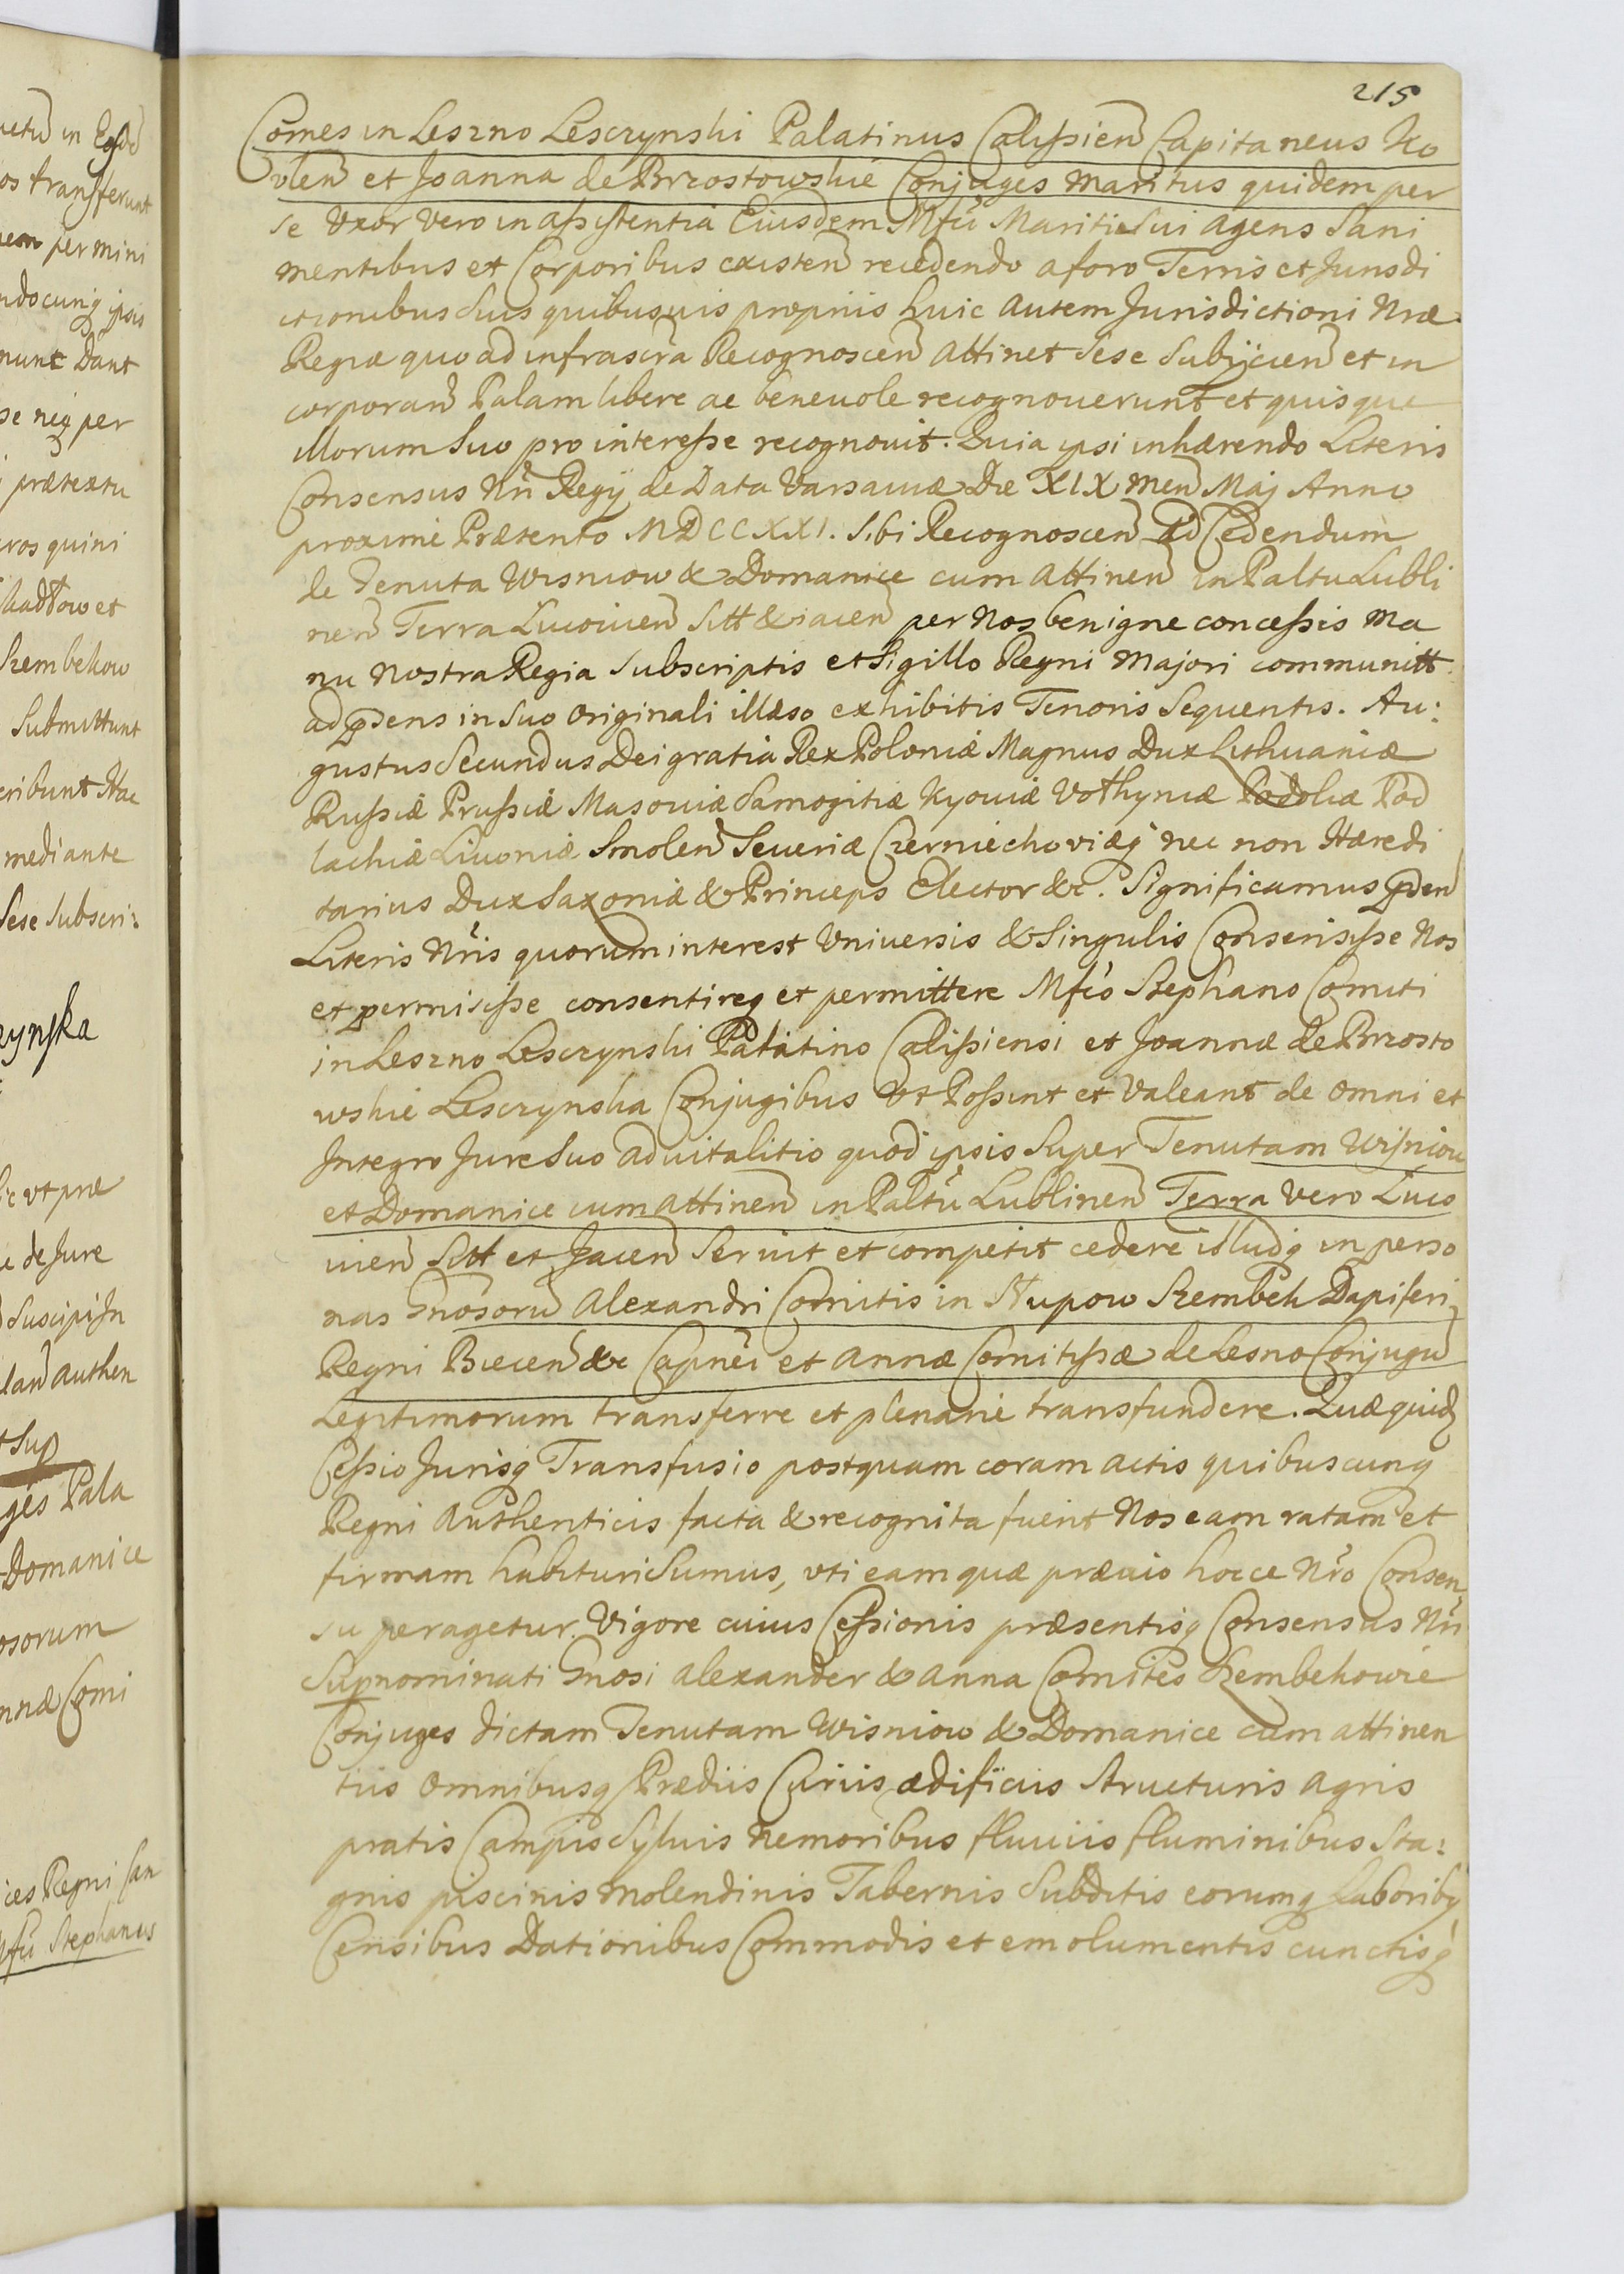 215
Comes in Leszno Lesczynski Palatinus Calissien Capitaneus Ko
vlen et Joanna de Brzostowskie Conjuges Maritus quidem per
se Uxor vero in assistentia Eiusdem Mfci Mariti Sui agens Sani
mentibus et Corporibus existen recedendo a foro Terris et Jurisdi
ctionibus Suis quibusuis proprijs huic autem Jurisdictioni Nræ
Regiæ quo ad infrascra Recognoscen attinet Sese Subijcien et in
corporan Palam libere ac beneuole recognouerunt et quisque
Illorum Suo pro interesse recognouit. Quia ipsi inhærendo Literis
Consensus Nri Regij de Data Varsauiæ Die XIX men Maj Anno
proxime Præterito MDCCXXI. Sibi Recognoscen Ad Cedendum
de Tenuta Wisniow & Domanice cum attinen in Paltu Lubli
nen Terra Lucouien Sitt & iacen per Nos benigne concessis Ma
nu Nostra Regia Subscriptis et Sigillo Regni Majori communitt
ad pdens in Suo originali illæso exhibitis Tenoris Sequentis. Au:
gustus Secundus Dei gratia Rex Poloniæ Magnus Dux Lithuaniæ
Russiæ Prussiæ Masouiæ Samogitiæ Kyouiæ Vothyniæ Podoliæ Pod
lachiæ Liuoniæ Smolen Seueriæ Czerniechoviæq nec non Hæredi
tarius Dux Saxoniæ & Princeps Elector &c. Significamus pden
Literis Nris quorum interest Vniuersis & Singulis Consensisse Nos
et permisisse consentireq et permittere Mfco Stephano Comiti
in Leszno Lesczynski Palatino Calissiensi et Joannæ de Brzosto
wskie Lesczynska Conjugibus Vt Possint et Valeant de omni et
Integro Jure Suo aduitalitio quod ipsis Super Tenutam Wisniow
et Domanice cum attinen in Paltu Lublinen Terra vero Luco
uien Sitt et Jacen Seruit et competit cedere illudq in perso
nas Gnosoru Alexandri Comitis in Słupow Szembek Dapiferi
Regni Biecen &c Capnei et Annæ Comitissæ de Lesno Conjugu
Legitimorum transferre et plenarie transfundere. Quæquid
Cessio Jurisq Transfusio postquam coram actis quibuscunq
Regni Authenticis facta & recognita fuerit Nos eam ratam et
firmam habituri Sumus, vti eam quæ præuio hocce Nro Consen
su peragetur. Vigore cuius Cessionis præsentisq Consensus Nri
Supnominati Gnosi Alexander & Anna Comites Szembekowie
Conjuges dictam Tenutam Wisniow & Domanice cum attinen
tiis omnibusq Prædiis Curiis ædificiis Structuris agris
pratis Campis Syluis Nemoribus fluuiis fluminibus Sta:
gnis piscinis molendinis Tabernis Subditis eorumq Laboribq
Censibus Dationibus Commodis et emolumentis cunctisq